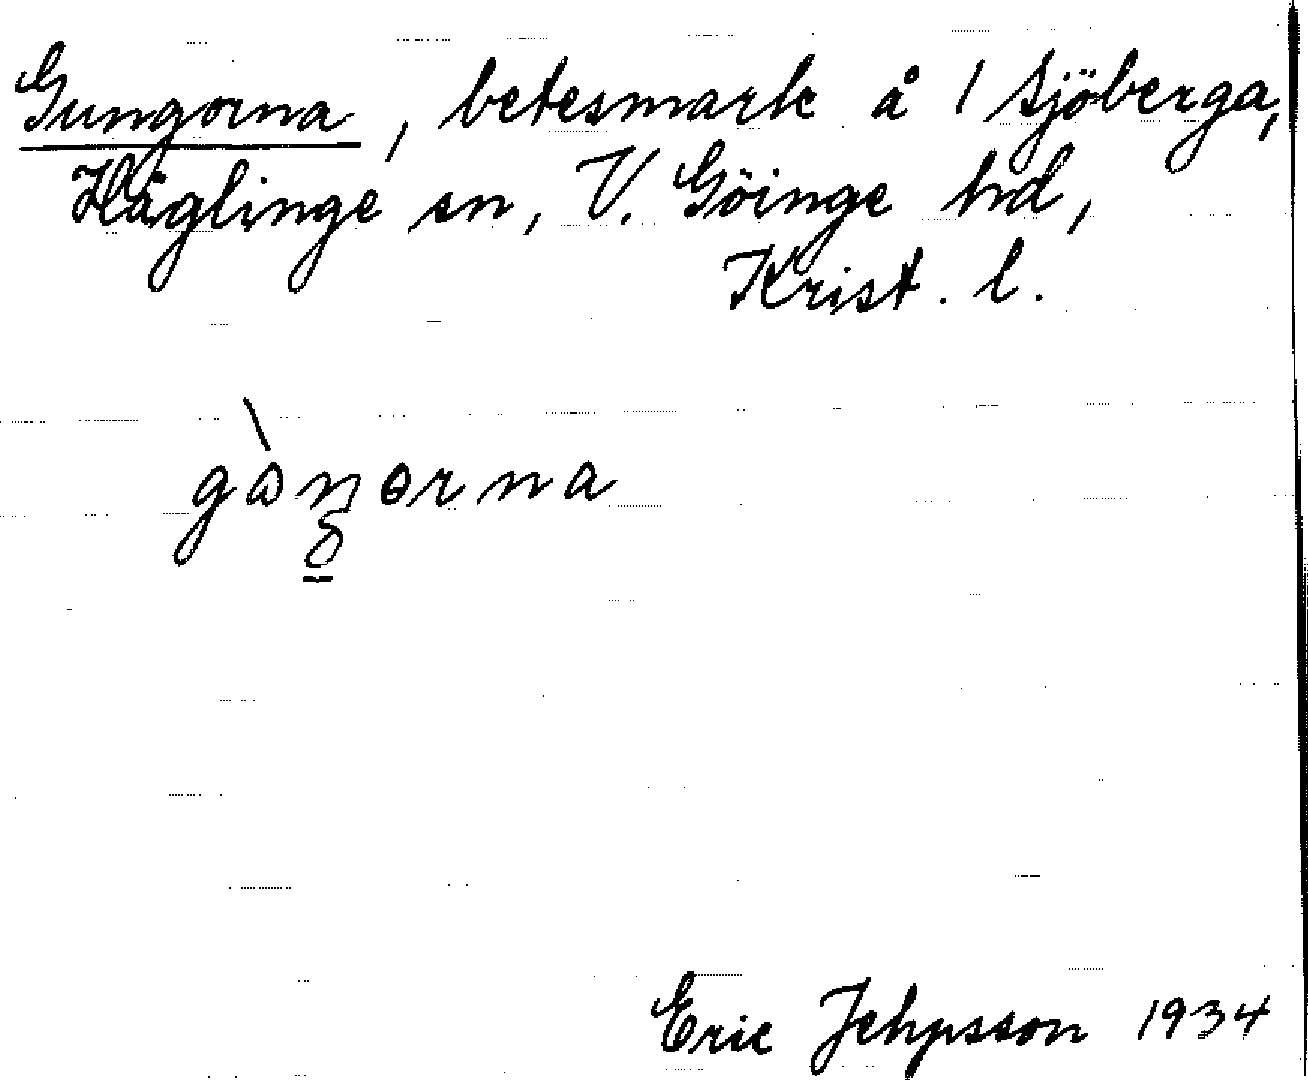 Gungorna, betesmark å 1 Sjöberga,
Häglinge sn, V. Göinge hd,
Krist. l.
gàŋɵrna
Eric Jehpsson 1934